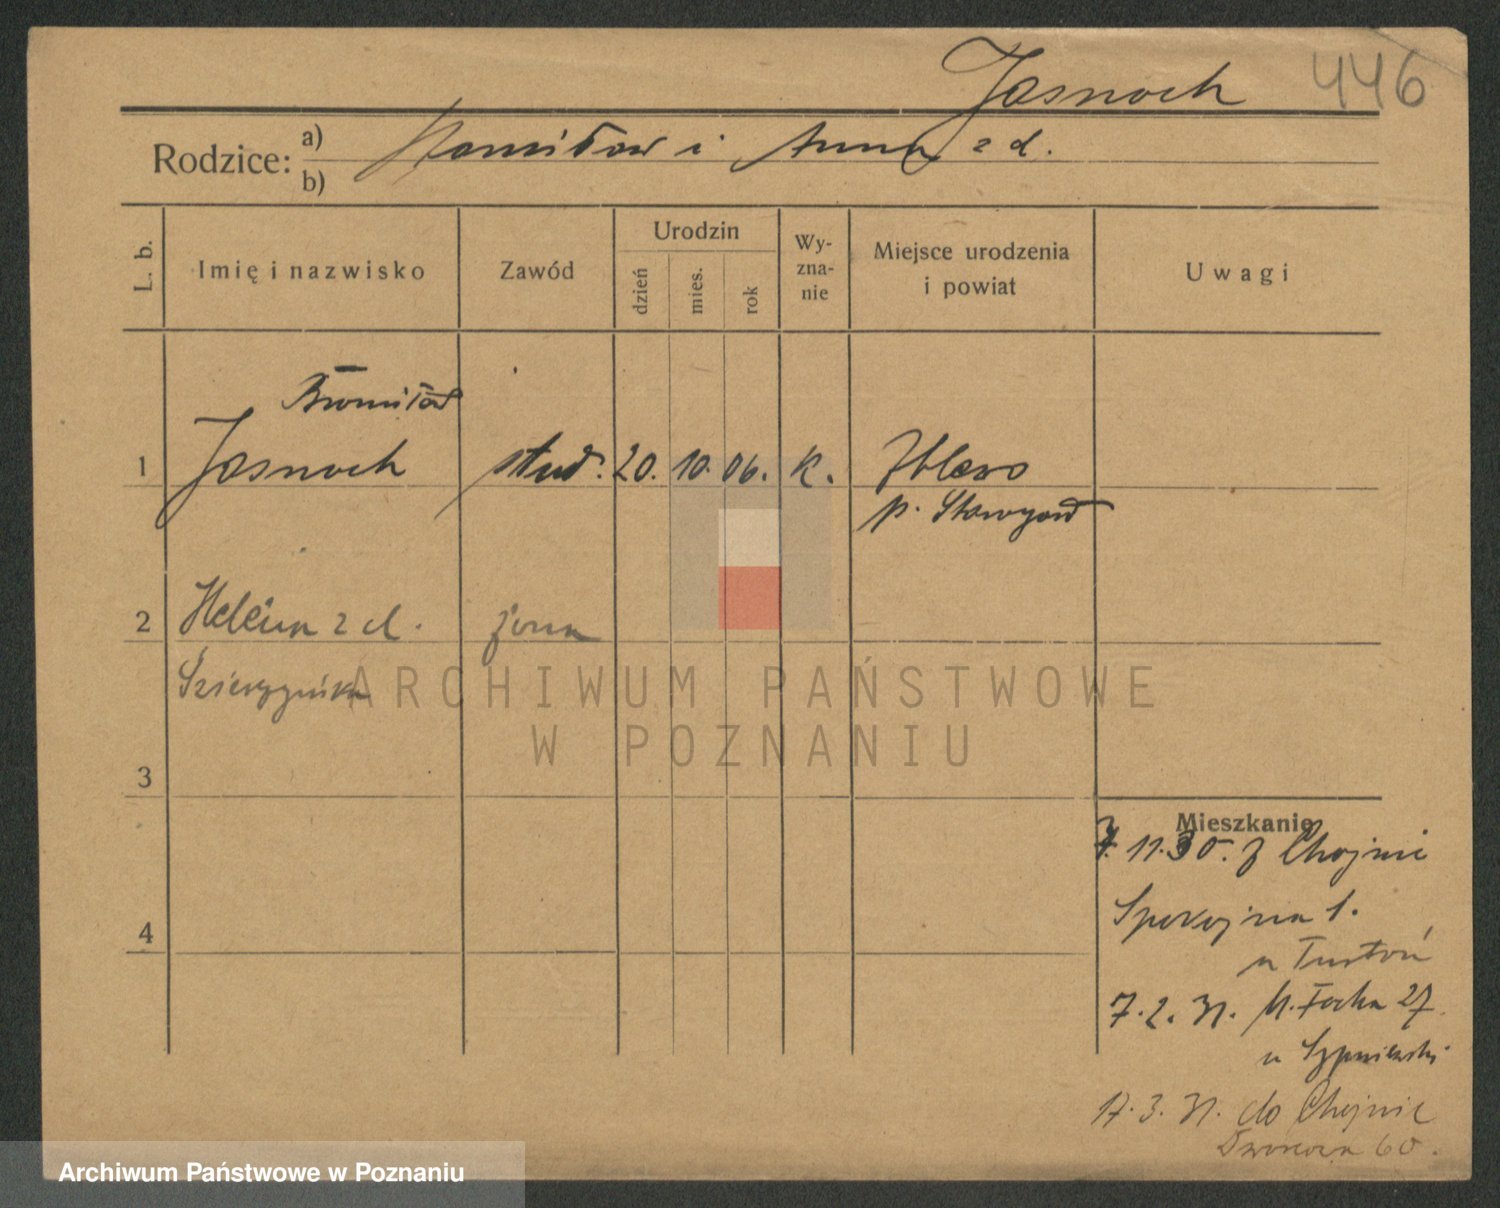 Jasnoch 446
Rodzice: a) Stanisław i Anna z d.
b)
L. b. Imię i nazwisko Zawód Urodzin dzień mies. rok Wyznanie Miejsce urodzenia i powiat Uwagi
Bronisław
1 Jasnoch stud. 20. 10. 06. k. Zblewo
p. Starogard
2 Helena z d. żona
3
4
ARCHIWUM PAŃSTWOWE
W POZNANIU
Mieszkanie
7. 11. 30. z Chojnic
Spokojna 1.
u
7. 2. 31. M. Focha 27.
u
17. 3. 31. do Chojnic
Dworcowa 60.
Archiwum Państwowe w Poznaniu